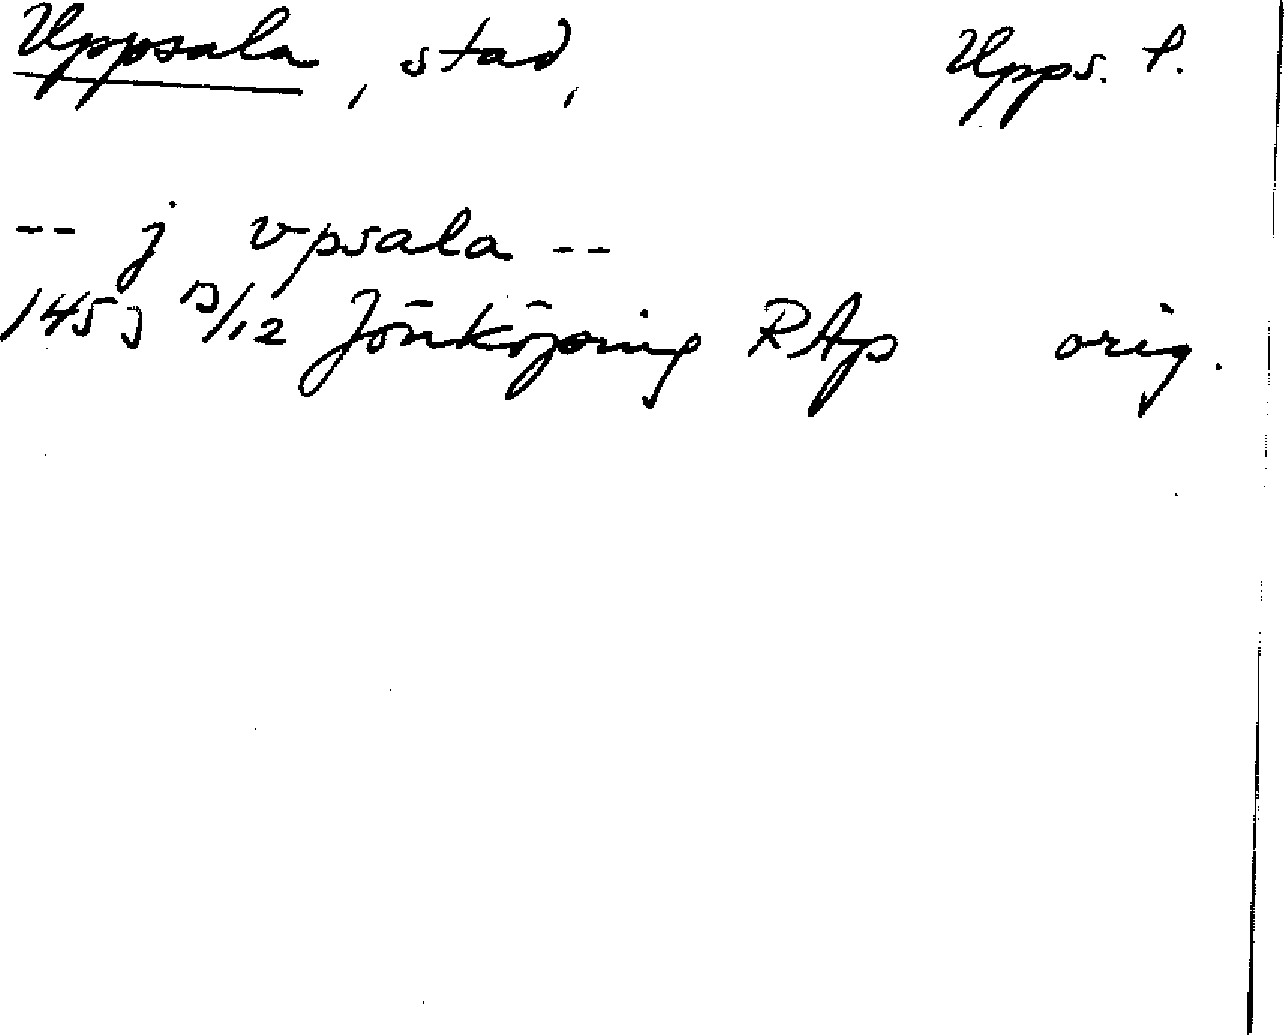 Uppsala, stad, Upps. l.
-- j vpsala --
1453 13/12 Jönköping RAp orig.